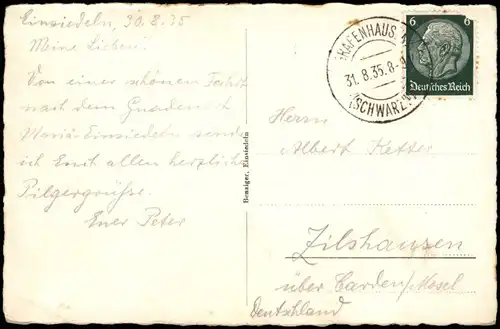 Einsiedeln, 30.8.35
Meine Lieben!
Von einer schönen Fahrt
nach dem Gnadenort
Maria-Einsiedeln sende
ich Euch allen herzliche
Pilgergrüsse.
Euer Peter
Benziger, Einsiedeln
GRAFENHAUS
31.8.35.8-9
(SCHWARZW
6 6
Deutsches Reich
Herrn
Albert Ketter
Zilshausen
über Carden/Mosel
Deutschland